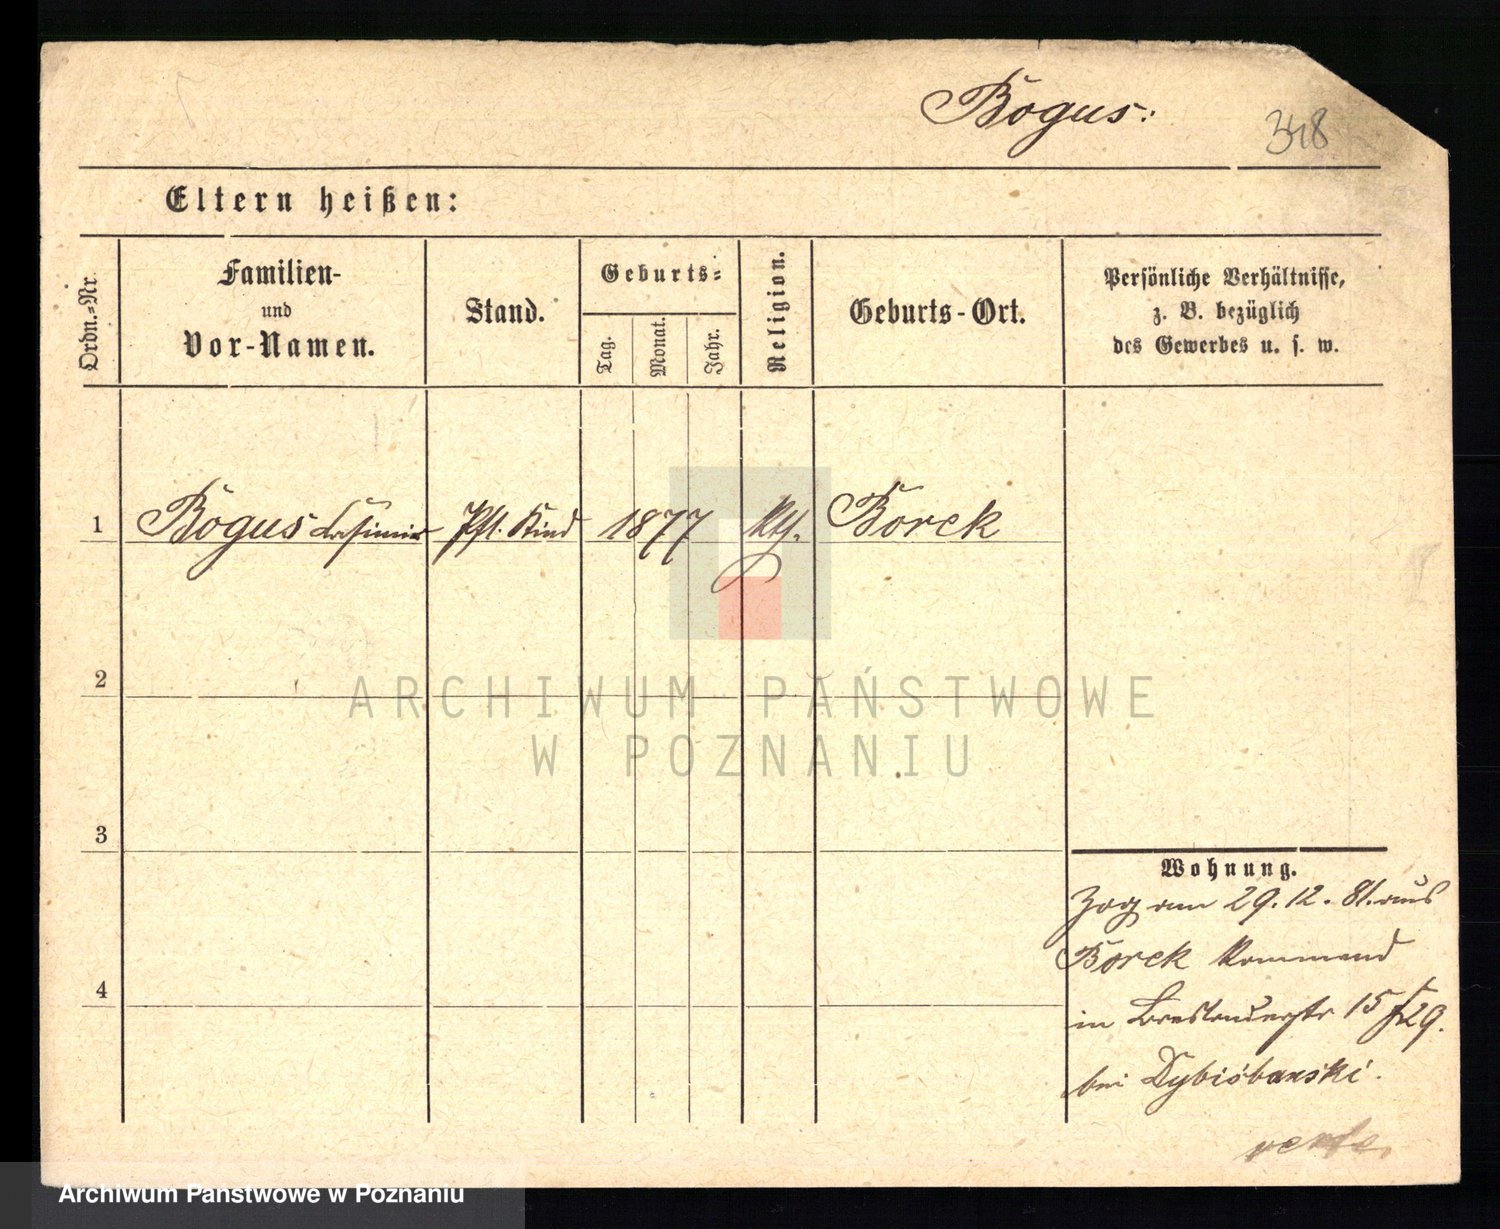 Bogus:
348
Eltern heißen:
Ordn.-Nr.
Familien-
und
Vor-Namen.
Stand.
Geburts-
Tag.
Monat.
Jahr.
Religion.
Geburts-Ort.
Persönliche Verhältnisse,
z. B. bezüglich
des Gewerbes u. s. w.
1 Bogus Casimir Pfl. Kind 1877 Kth. Borek
2
3
4
Wohnung.
Zog am 29.12.81. aus
Borek kommend
in Breslauerstr 15/29.
bei
ARCHIWUM PAŃSTWOWE
W POZNANIU
Archiwum Państwowe w Poznaniu